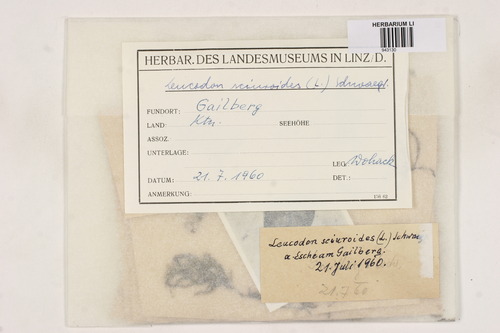 HERBARIUM LI
HERBAR. DES LANDESMUSEUMS IN LINZ/D.
Leucodon sciuroides (L.) Schwaegr.
FUNDORT: Gailberg
LAND: Ktn. SEEHÖHE
ASSOZ.
UNTERLAGE:
LEG.
DATUM: 21. 7. 1960 DET.:
ANMERKUNG:
Leucodon sciuroides (L.) Schwae
a. Esche am Gailberg.
21. Juli 1960.
21.7.60